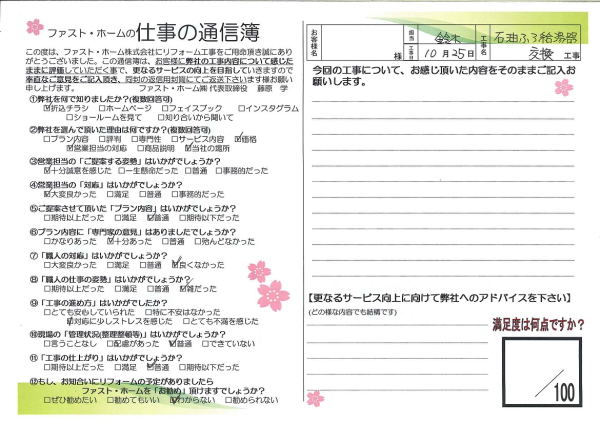 ファスト・ホームの仕事の通信簿
この度は、ファスト・ホーム株式会社にリフォーム工事をご用命頂き誠にあり
がとうございました。この通信簿は、お客様に弊社の工事内容について感じた
ままに評価していただく事で、更なるサービスの向上を目指していきますので
率直なご意見をご記入頂き、同封の返信用封筒にてご返送下さいます様お願い
申し上げます。 ファスト・ホーム㈱ 代表取締役 藤原 学
①弊社を何で知りましたか?(複数回答可)
☑折込チラシ □ホームページ □フェイスブック □インスタグラム
□ショールームを見て □知り合いから聞いて
②弊社を選んで頂いた理由は何ですか?(複数回答可)
□プラン内容 □評判 □専門性 □サービス内容 ☑価格
☑営業担当の対応 □商品説明 ☑当社の場所
③営業担当の「ご提案する姿勢」はいかがでしょうか?
☑十分誠意を感じた □一生懸命だった □普通 □事務的だった
④営業担当の「対応」はいかがでしょうか?
☑大変良かった □満足 □普通 □事務的だった
⑤ご提案させて頂いた「プラン内容」はいかがでしょうか?
□期待以上だった □満足 ☑普通 □期待以下だった
⑥プラン内容に「専門家の意見」はありましたでしょうか?
□かなりあった ☑十分あった □普通 □殆んどなかった
⑦「職人の対応」はいかがでしょうか?
□大変良かった □満足 □普通 ☑良くなかった
⑧「職人の仕事の姿勢」はいかがでしょうか?
□期待以上だった □満足 □普通 ☑雑だった
⑨「工事の進め方」はいかがでしたか?
□とても安心していられた □特に不安はなかった
☑対応に少しストレスを感じた □とても不満を感じた
⑩現場の「管理状況(整理整頓等)」はいかがでしょうか?
□言うことなし □配慮があった ☑普通 □できていない
⑪「工事の仕上がり」はいかがでしょうか?
□期待以上だった □満足 ☑普通 □期待以下だった
⑫もし、お知合いにリフォームの予定がありましたら
ファスト・ホームを「お勧め」頂けますでしょうか?
□ぜひ勧めたい □勧めてもいい ☑わからない □勧められない
お客様名 様 担当 鈴木 工事名 石油ふろ給湯器
工事日 10月25日 交換 工事
今回の工事について、お感じ頂いた内容をそのままご記入お
願いします。
【更なるサービス向上に向けて弊社へのアドバイスを下さい】
(どの様な内容でも結構です)
満足度は何点ですか?
/100